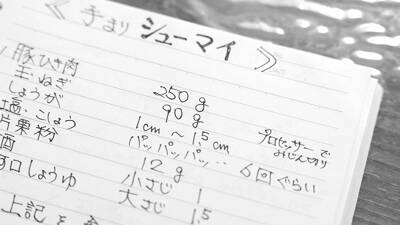 《手まりシューマイ》
豚ひき肉 250g
玉ねぎ 90g プロセッサーでみじん切り
しょうが 1cm〜1.5cm
塩・こしょう パッパッパッ‥ 6回ぐらい
片栗粉 12g
酒 小さじ 1
口しょうゆ 大さじ 1.5
上記を